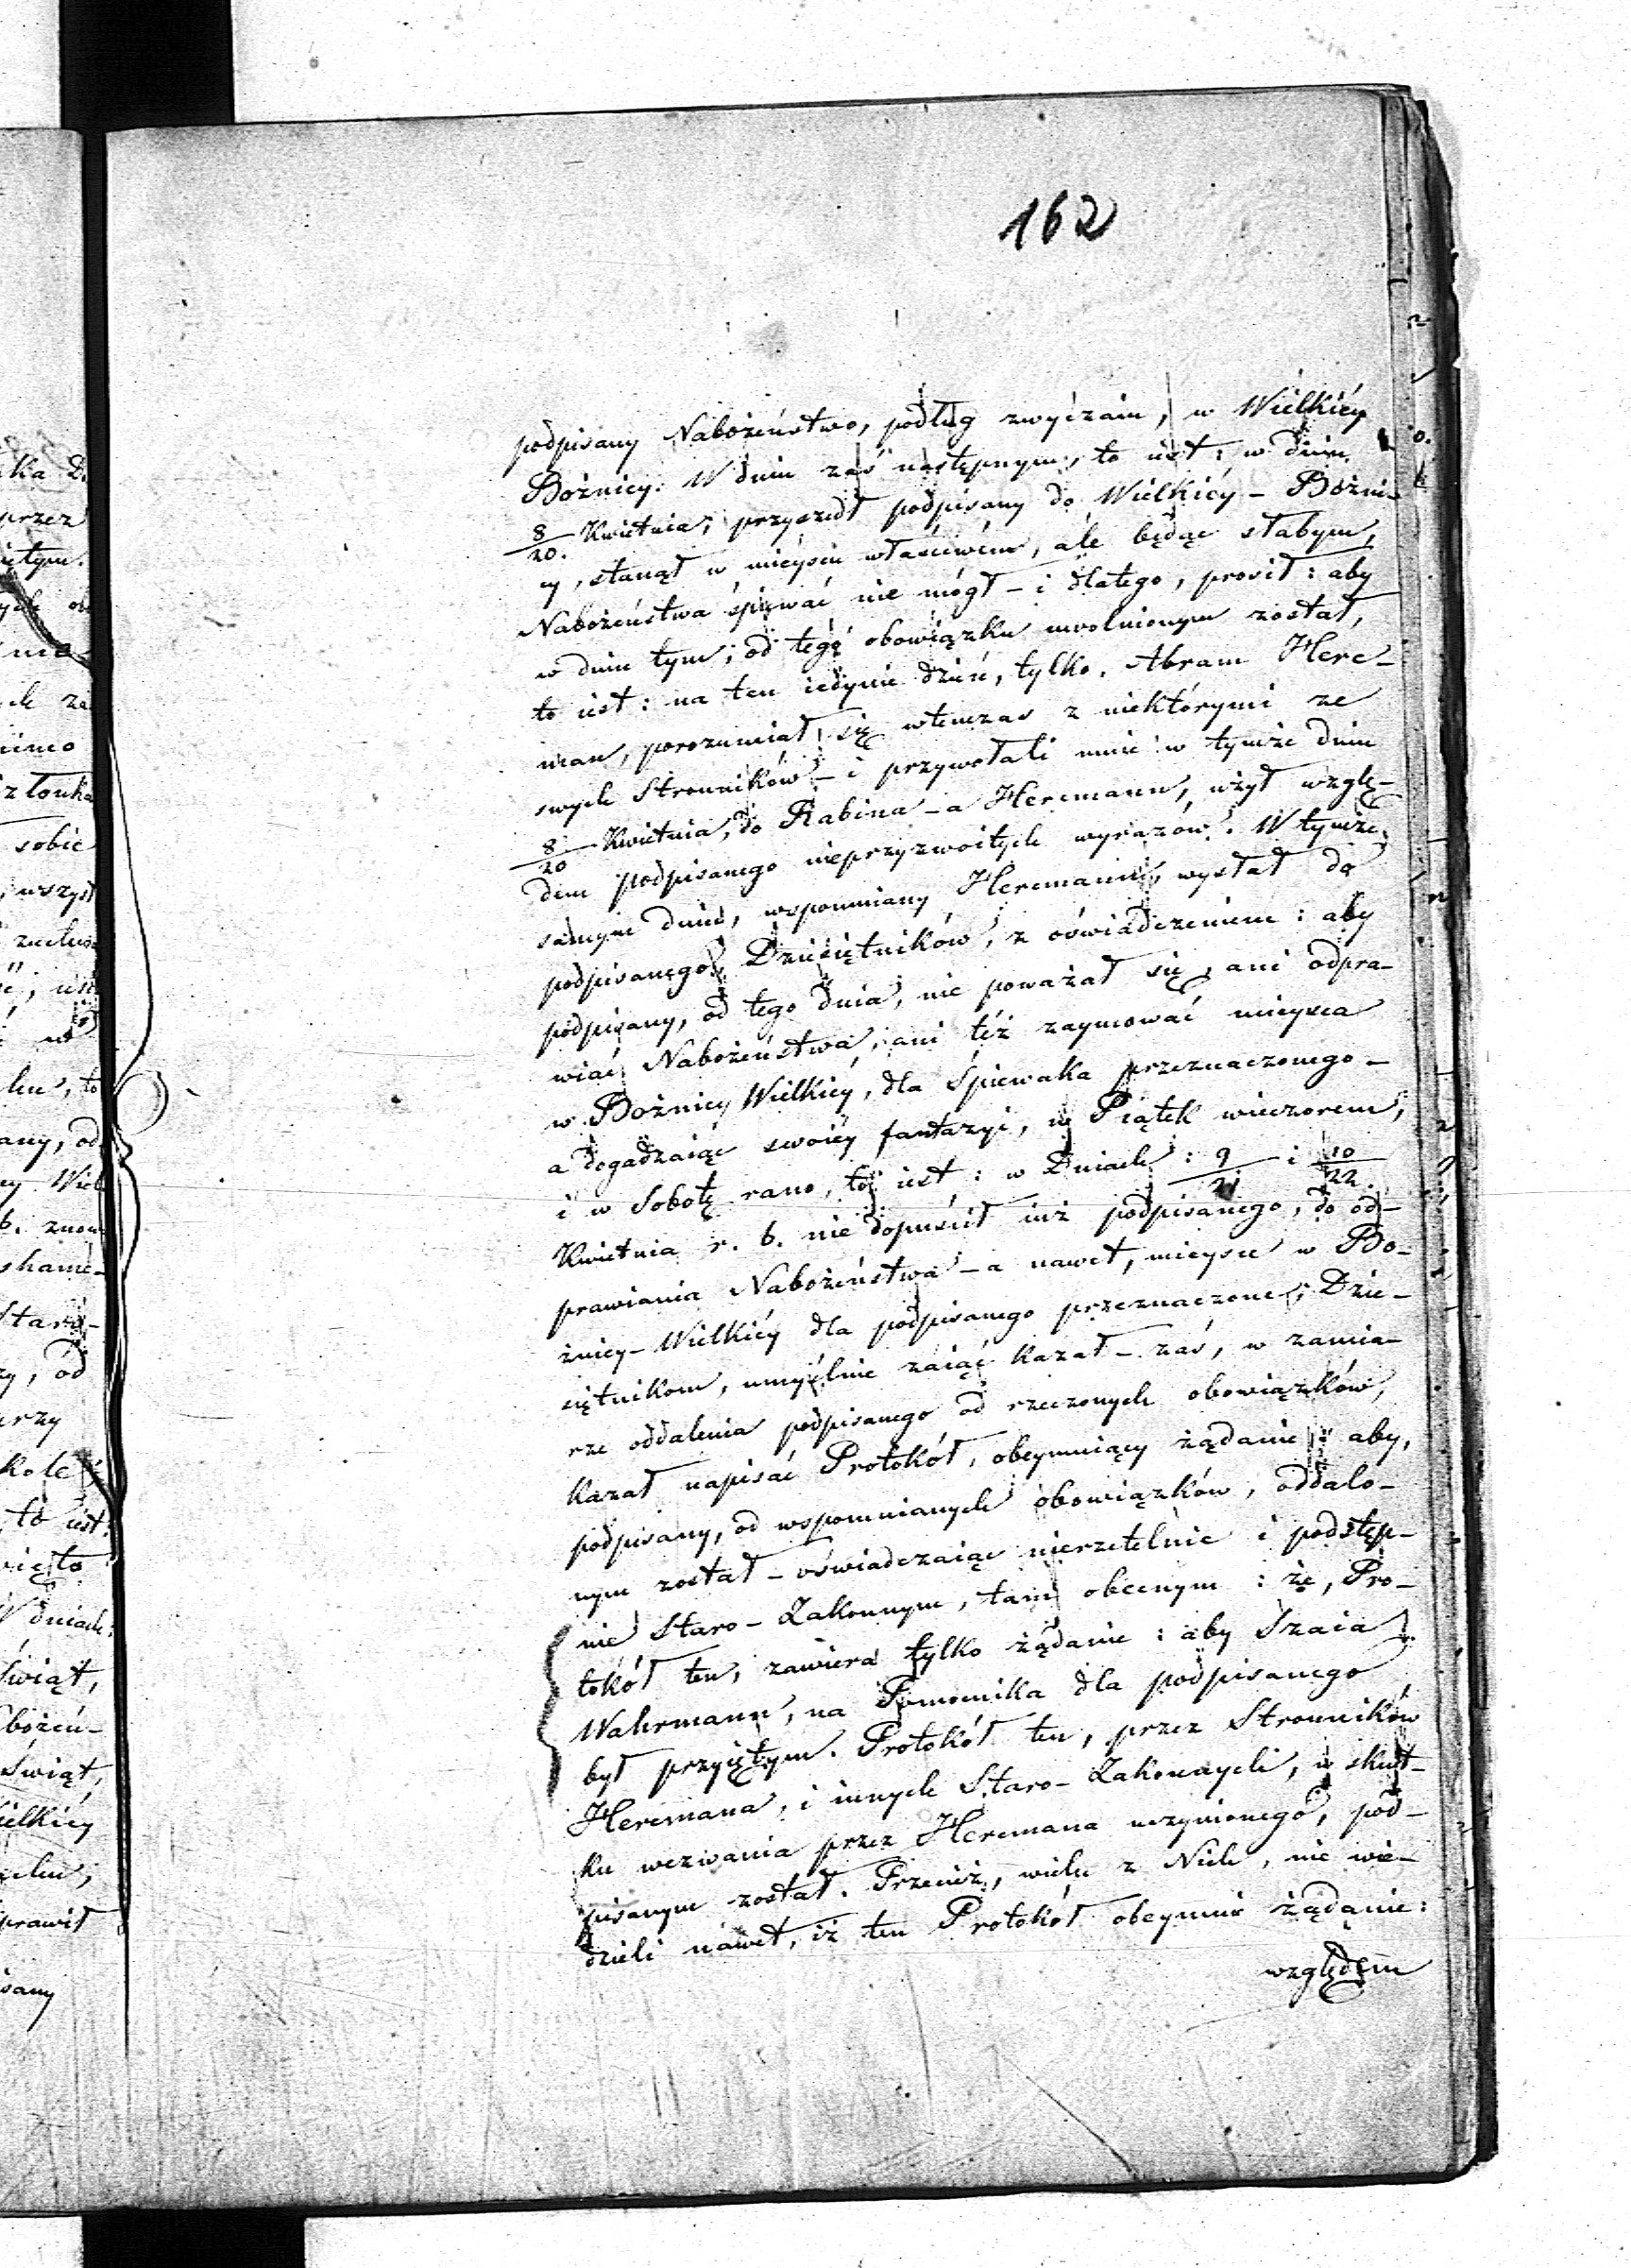 162
podpisany Nabożeństwo, podług zwyczaiu, w Wielkiéy
Bożnicy. W dniu zaś następnym, to iest: w dniu
8/20. Kwietnia, przyszedł podpisany do Wielkiéy - Bożni-
cy, stanął w mieyscu właściwém, ale będąc słabym,
Nabożeństwa śpiewać nie mógł - i dlatego, prosił: aby
w dniu tym, od tego obowiązku uwolnionym został,
to iest: na ten iedynie dzień, tylko. Abram Herc-
man, porozumiał się wtenczas z niektórymi ze
swych Stronników - i przywołali mnie w tymże dniu
8/20 Kwietnia, do Rabina - a Hercmann, użył wzglę-
dem podpisanego nieprzyzwoitych wyrazów. W tymże
samym dniu, wspomniany Hercmann, wysłał do
podpisanego, Dziesiętników, z oświadczeniem: aby
podpisany, od tego dnia, nie poważał się, ani odpra-
wiać Nabożeństwa, ani też zaymować mieysca
w Bożnicy Wielkiéy, dla Śpiewaka przeznaczonego -
a dogadzaiąc swoiéy fantazyi, w Piątek wieczorem,
i w Sobotę rano, to iest: w Dniach: 9/21 i 10/22.
Kwietnia r. b. nie dopuścił iuż podpisanego, do od-
prawiania Nabożeństwa - a nawet, mieysce w Bo-
żnicy - Wielkiéy dla podpisanego przeznaczone, Dzie-
siętnikom, umyślnie zaiąć kazał - zaś, w zamia-
rze oddalenia podpisanego od rzeczonych obowiązków,
kazał napisać Protokół, obeymuiący żądanie: aby,
podpisany, od wspomnianych obowiązków, oddalo-
nym został - oświadczaiąc nierzetelnie i podstęp-
nie Staro - Zakonnym, tam obecnym: że, Pro-
tokół ten, zawiera tylko żądanie: aby Szaia
Wahrmann, na Pomocnika dla podpisanego
był przyiętym. Protokół ten, przez Stronników
Hercmana, i innych Staro - Zakonnych, w skut-
ku wezwania przez Hercmana uczynionego, pod-
pisanym został. Przecież, wielu z Nich, nie wie-
dzieli nawet, iż ten Protokół obeymuie żądanie:
względem